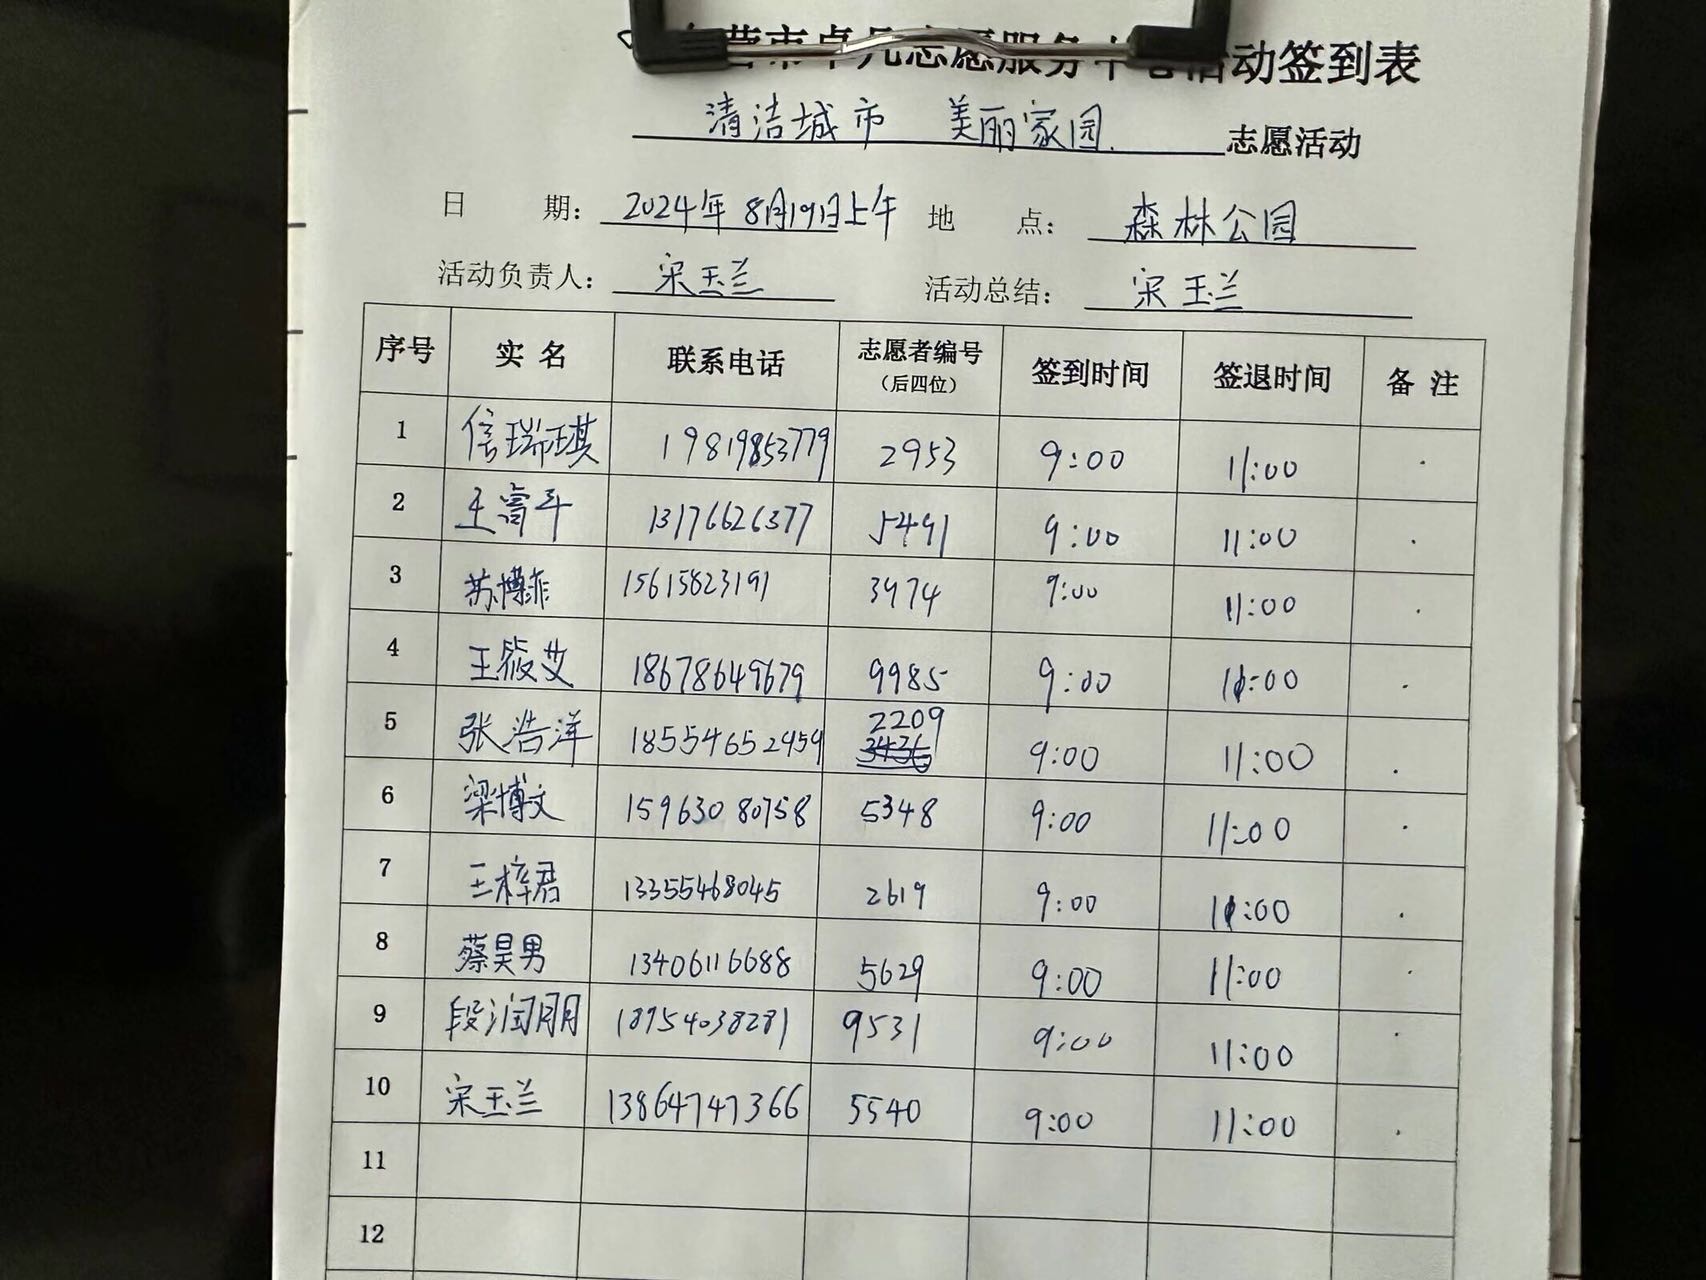 营市卓凡志愿服务中心活动签到表
清洁城市 美丽家园. 志愿活动
日 期: 2024年8月19日上午 地 点: 森林公园
活动负责人: 宋玉兰 活动总结: 宋玉兰
序号 实名 联系电话 志愿者编号 签到时间 签退时间 备注
(后四位)
1 信瑞琪 19819853779 2953 9:00 11:00
2 王睿平 13176626377 5491 9:00 11:00
3 苏博菲 15615823191 3974 9:00 11:00
4 王筱艾 18678649679 9985 9:00 11:00
5 张浩洋 18554652959 2209 9:00 11:00
6 梁博文 15963080758 5348 9:00 11:00
7 王梓君 13355468045 2619 9:00 11:00
8 蔡昊男 13406116688 5629 9:00 11:00
9 段润朋 18954038281 9531 9:00 11:00
10 宋玉兰 13864747366 5540 9:00 11:00
11
12